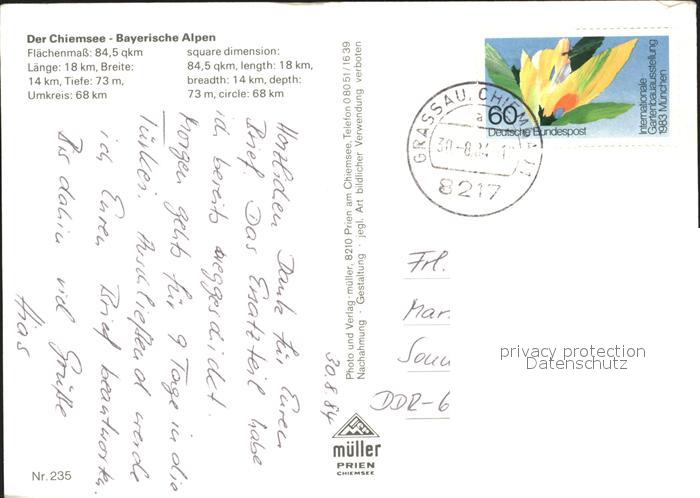 Der Chiemsee - Bayerische Alpen
Flächenmaß: 84,5 qkm
Länge: 18 km, Breite:
14 km, Tiefe: 73 m,
Umkreis: 68 km
square dimension:
84,5 qkm, length: 18 km,
breadth: 14 km, depth:
73 m, circle: 68 km
30.8.84
Herzlichen Dank für Euren
Brief. Das Ersatzteil habe
ich bereits weggeschickt.
Morgen gehts für 9 Tage in die
Türkei. Anschließend werde
ich Euren Brief beantworten.
Bis dahin viel Grüße
Hias
Nr. 235
Photo und Verlag · müller, 8210 Prien am Chiemsee, Telefon 0 80 51/16 39
Nachahmung · Gestaltung · jegl. Art bildlicher Verwendung verboten
müller
PRIEN
CHIEMSEE
GRASSAU, CHIEM
30.-8.84
8217
60
Deutsche Bundespost
Internationale
Gartenbauausstellung
1983 München
Frl.
Mar
Sonn
DDR-6
privacy protection
Datenschutz